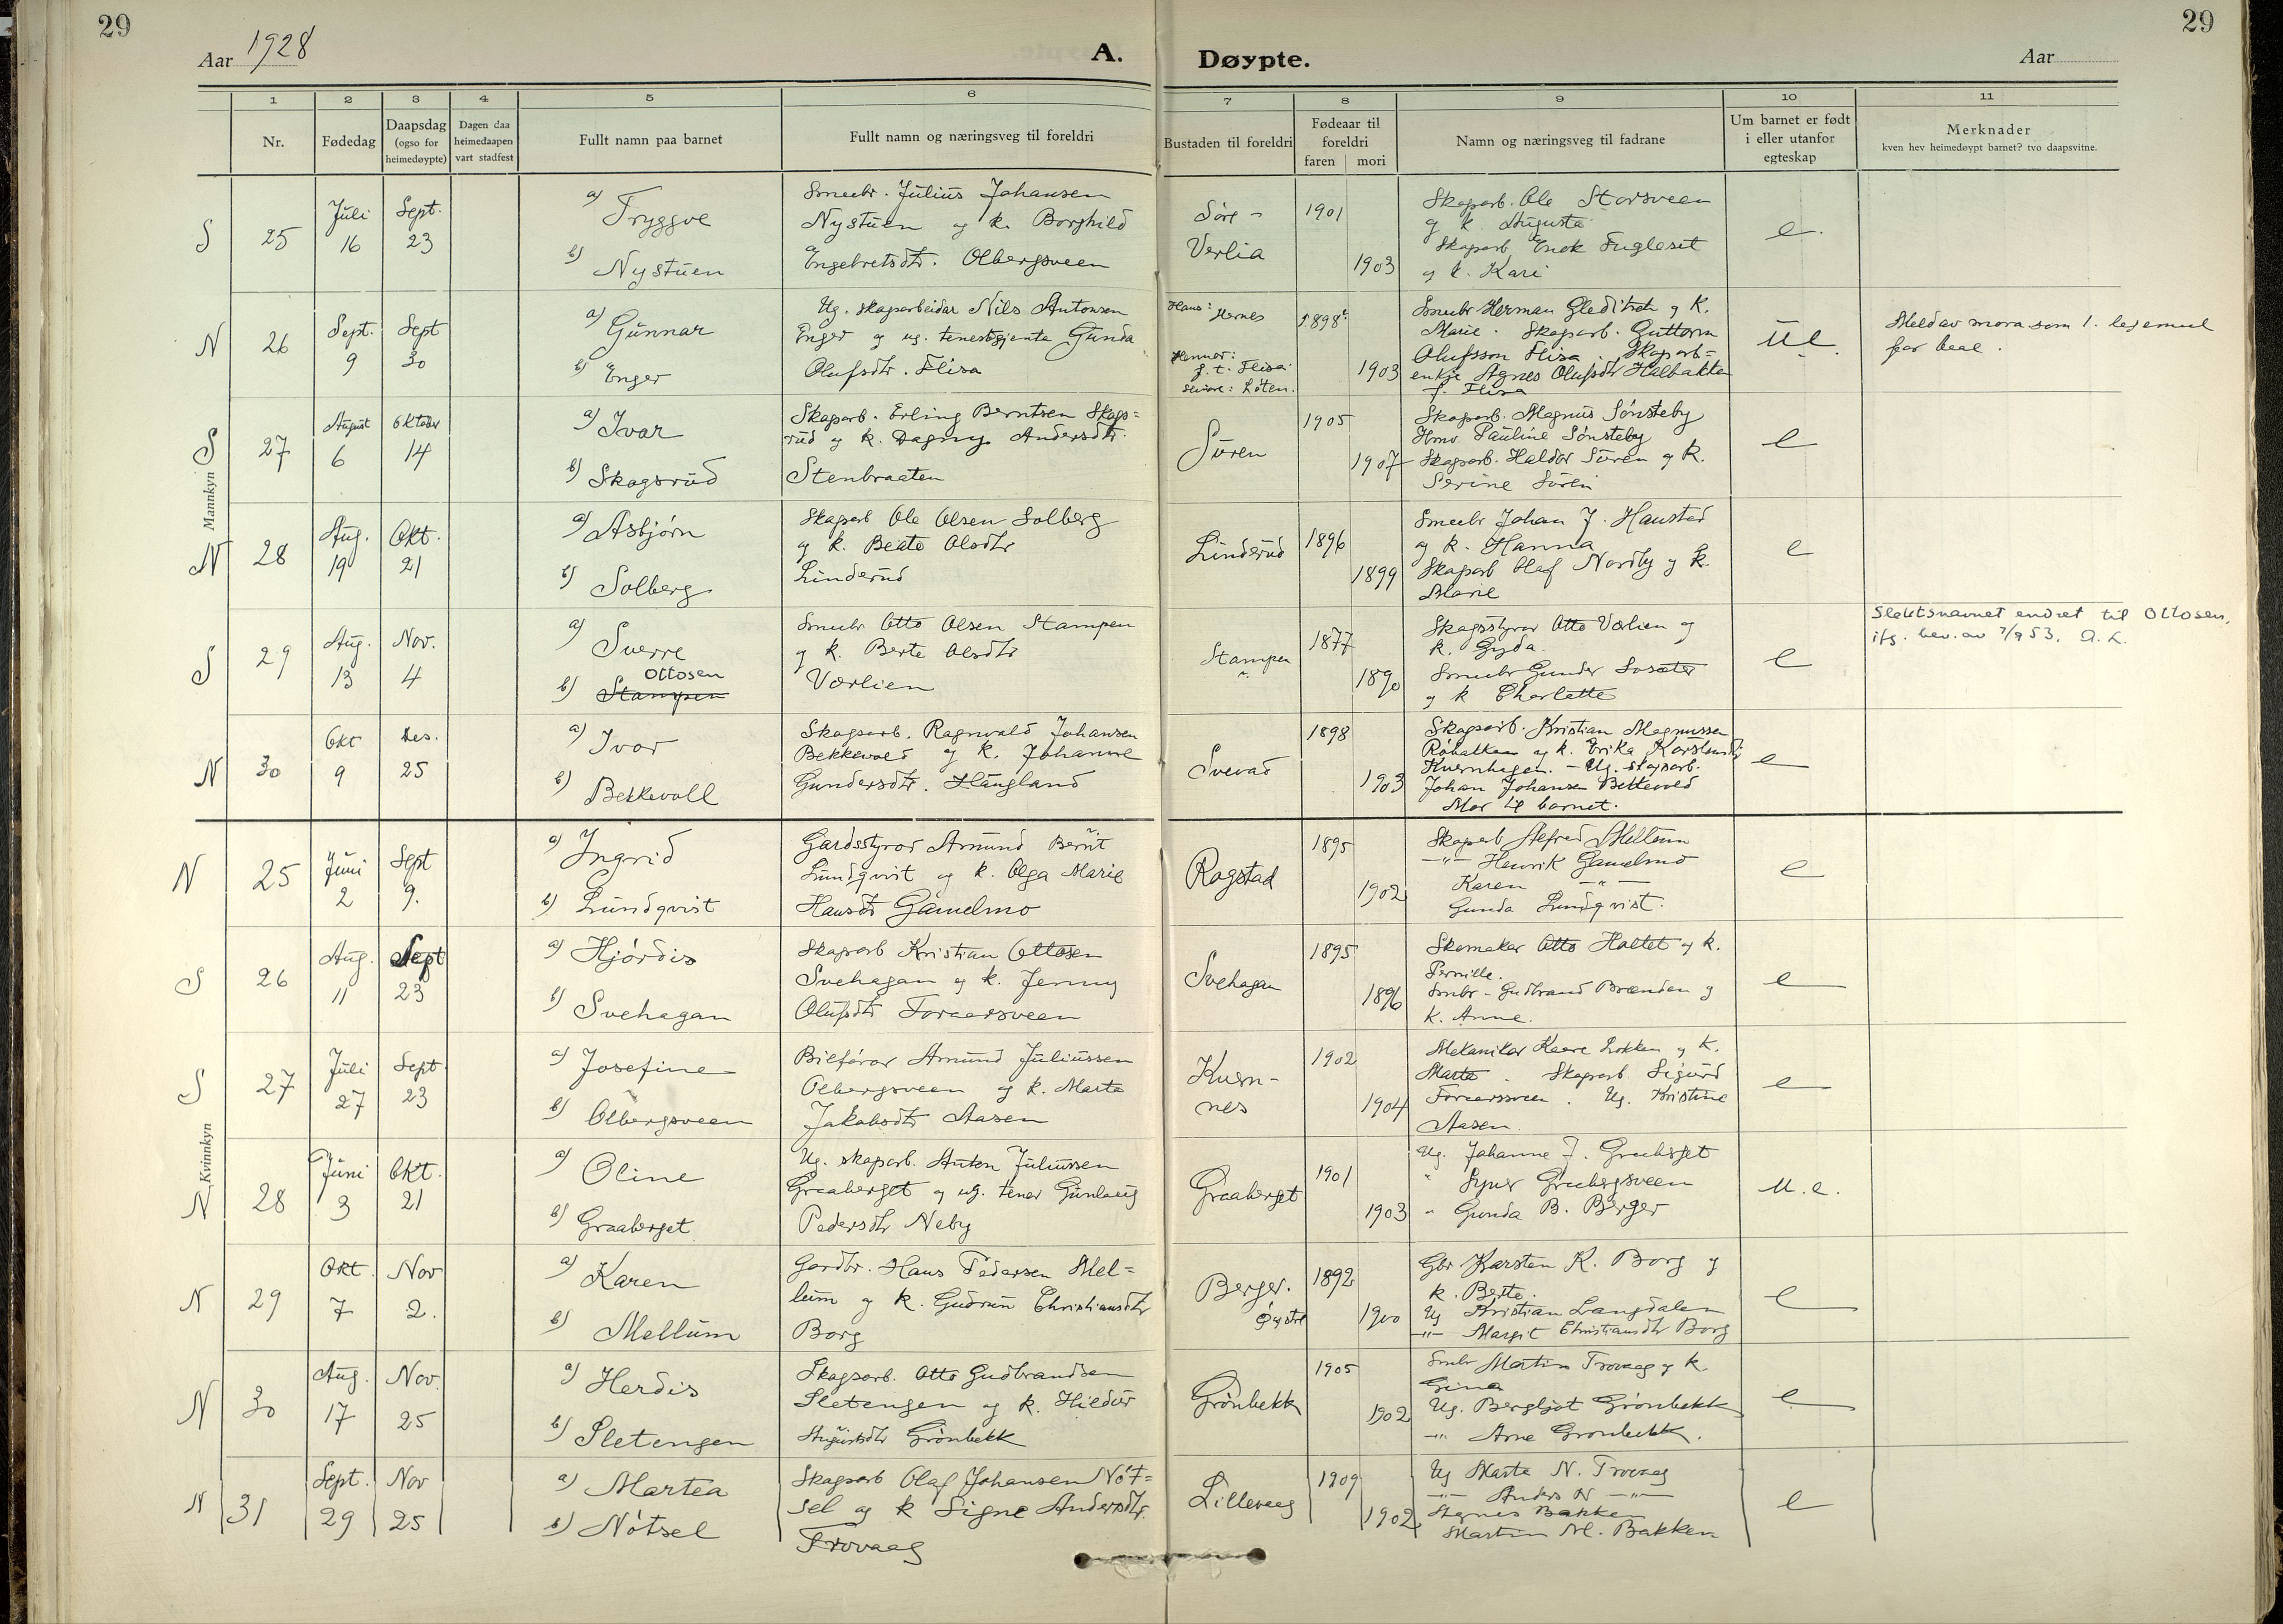 29
29
Aar 1928
A. Døypte.
Aar
1 2 3 4 5 6 7 8 9 10 11
Nr. Fødedag Daapsdag (ogso for heimedøypte) Dagen daa heimedaapen vart stadfest Fullt namn paa barnet Fullt namn og næringsveg til foreldri Bustaden til foreldri Fødeaar til foreldri faren mori Namn og næringsveg til fadrane Um barnet er født i eller utanfor egteskap Merknader kven hev heimedøypt barnet? tvo daapsvitne.
Mannkyn
S 25 Juli 16 Sept. 23
a) Tryggve
b) Nystuen
Smeubr. Julius Johansen
Nystuen og k. Borghild
Engebretsdtr. Olbergsveen
Søre-
Verlia
1901
1903
Skogarb. Ole Storsveen
og k. Augusta
Skogarb Enok Fugleset
og k. Kari
e.
N 26 Sept. 9 Sept 30
a) Gunnar
b) Enger
Ug. skogarbeidar Nils Antonsen
Enger og ug. tenestgjenta Gunda
Olufsdtr. Flisa
Hans: Hernes
Hennar:
f. t. Flisa
seinre: Løten.
1898
1903
Smeubr Herman Gleditsch og K.
Marie. Skogarb. Guttorm
Olufsson Flisa. Skogarb-
enkje Agnes Olufsdtr Halbakken
f. Flisa
U.e.
Meld av mora som 1. legemeel
far beae.
S 27 August 6 Oktober 14
a) Ivar
b) Skogsrud
Skogarb. Erling Berntsen Skogs=
rud og k. Dagny Andersdtr.
Stenbraaten
Sören
1905
1907
Skogarb. Magnus Sønsteby
Hmv Pauline Sønsteby
Skogarb. Haldor Sören og K.
Serine Sören
e
N 28 Aug. 19 Okt. 21
a) Asbjørn
b) Solberg
Skogarb Ole Olsen Solberg
og k. Beate Olsdtr
Linderud
Linderud
1896
1899
Smeubr Johan J. Haustad
og k. Hanna
Skogarb Olaf Nordby og k.
Marie
e
S 29 Aug. 13 Nov. 4
a) Sverre
Ottosen
b) Stampen
Smeubr Otto Olsen Stampen
og k. Berte Olsdtr
Værlien
Stampen
1877
1890
Skogsstyrar Otto Værlien og
k. Gyda.
Smeubr Gunder Sosæter
og k Charlotte
e
Slektsnavnet endret til Ottosen,
ifg. bev. av 7/9 53. A. L.
N 30 Okt 9 Des. 25
a) Ivar
b) Bekkevoll
Skogsarb. Ragnvald Johansen
Bekkevold og k. Johanne
Gundersdtr. Haugland
Svevad
1898
1903
Skogsarb. Kristian Magnussen
Røbakken og k. Erika Karstensdtr
Kvernhagen. - Ug. skogsarb.
Johan Johansen Bekkevold
Mor til barnet.
e
Kvinnkyn
N 25 Juni 2 Sept 9.
a) Ingrid
b) Lundqvist
Gardsstyrar Amund Bernt
Lundqvist og k. Olga Marie
Hansdtr Gamelmo
Rogstad
1895
1902
Skogarb Alfred Mellem
—"— Henrik Gamelmo
Karen —"—
Gunda Lundqvist.
e
S 26 Aug. 11 Sept 23
a) Hjørdis
b) Svehagan
Skogarb Kristian Ottosen
Svehagan og k. Jenny
Olufsdtr Foraarsveen
Svehagan
1895
1896
Skomaker Otto Holtet og k.
Pernille.
Smbr - Gudbrand Brænden og
k. Anne.
e
S 27 Juli 27 Sept 23
a) Josefine
b) Olbergsveen
Bilførar Amund Juliussen
Olbergsveen og k. Marta
Jakobsdtr Aasen
Kvern-
nes
1902
1904
Mekanikar Kaare Løkken og k.
Marta. Skogarb Sigurd
Foraarsveen. Ug. Kristine
Aasen.
e
N 28 Juni 3 Okt. 21
a) Oline
b) Graaberget
Ug. skogarb. Anton Juliussen
Graaberget og ug. tenar Gunlaug
Pedersdtr Neby
Graaberget
1901
1903
Ug. Johanne J. Graaberget
" Syver Graabergsveen
" Gunda B. Berger
u. e.
N 29 Okt. 7 Nov 2.
a) Karen
b) Mellum
Gardbr. Hans Pedersen Mel=
lum og k. Gudrun Christiansdtr
Borg
Berger.
Øystre
1892
1900
Gbr Karsten K. Borg og
k. Berte.
Ug Kristian Langdalen
—"— Margit Christiansdtr Borg
e
N 30 Aug. 17 Nov. 25
a) Herdis
b) Sletengen
Skogsarb. Otto Gudbrandsen
Sletengen og k. Hildur
Augustsdtr Grönbekk
Grönbekk
1905
1902
Smbr Martin Trovaag og k.
Gina
Ug. Bergljot Grönbekk
—"— Arne Grönbekk.
e
N 31 Sept. 29 Nov 25
a) Martea
b) Nótsel
Skogsarb Olaf Johansen Nót=
sel og k Signe Andersdtr.
Trovaag
Lillevaag
1909
1902
Ug Marta N. Trovaag
—"— Anders N —"—
Agnes Bakken
Martin M. Bakken
e